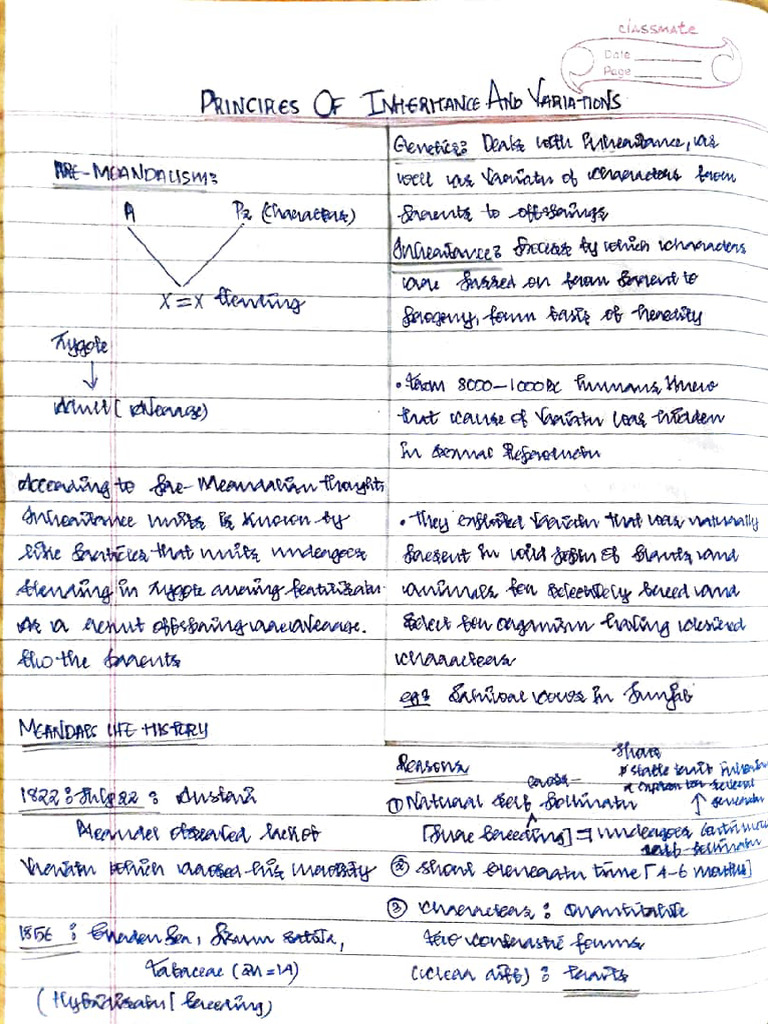 classmate
Date
Page
PRINCIPLES OF INHERITANCE AND VARIATIONS
PRE-MEANDALISM:
P2 (Characters)
X = X Blending
Zygote
Adult (Average)
According to Pre-Meandalian thoughts
Inheritance units is known by
like particles that units undergoes
blending in zygote during fertilisatn
As a result offspring are average.
the parents
Genetics: Deals with Inheritance, as
well as variatn of characters from
parents to offsprings
Inheritance: Process by which characters
are passed on from parent to
progeny, form basis of heredity
• From 8000-1000BC humans knew
that cause of variatn was hidden
in sexual Reproductn
• They exploited variatn that was naturally
present in wild poptn of plants and
animals for selectively breed and
select for organism having desired
characters
eg: Sahiwal cows in Punjab
MEANDALS LIFE HISTORY
1822: July 22: Austria
Meandel observed lack of
variatn which
1856: Garden Pea, Pisum sativum,
(2n=14)
(Hybridisatn / breeding)
Reasons
① Natural self pollinatn
cross-
[Pure breeding] → undergoes continuous
self-pollinatn
show
stable trait
generatn
② short generatn time [4-6 months]
③ characters:
two contrastic forms
(clear diff): traits